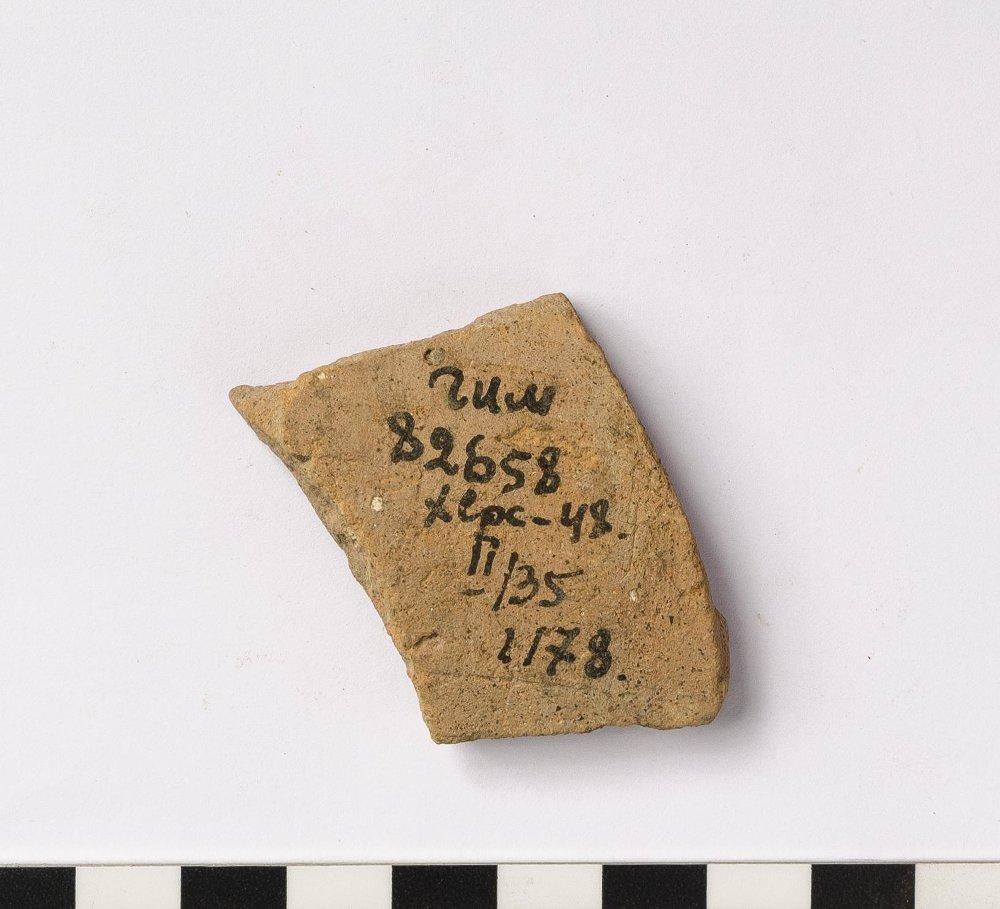 гим
82658
Херс-48.
II/35
1178.